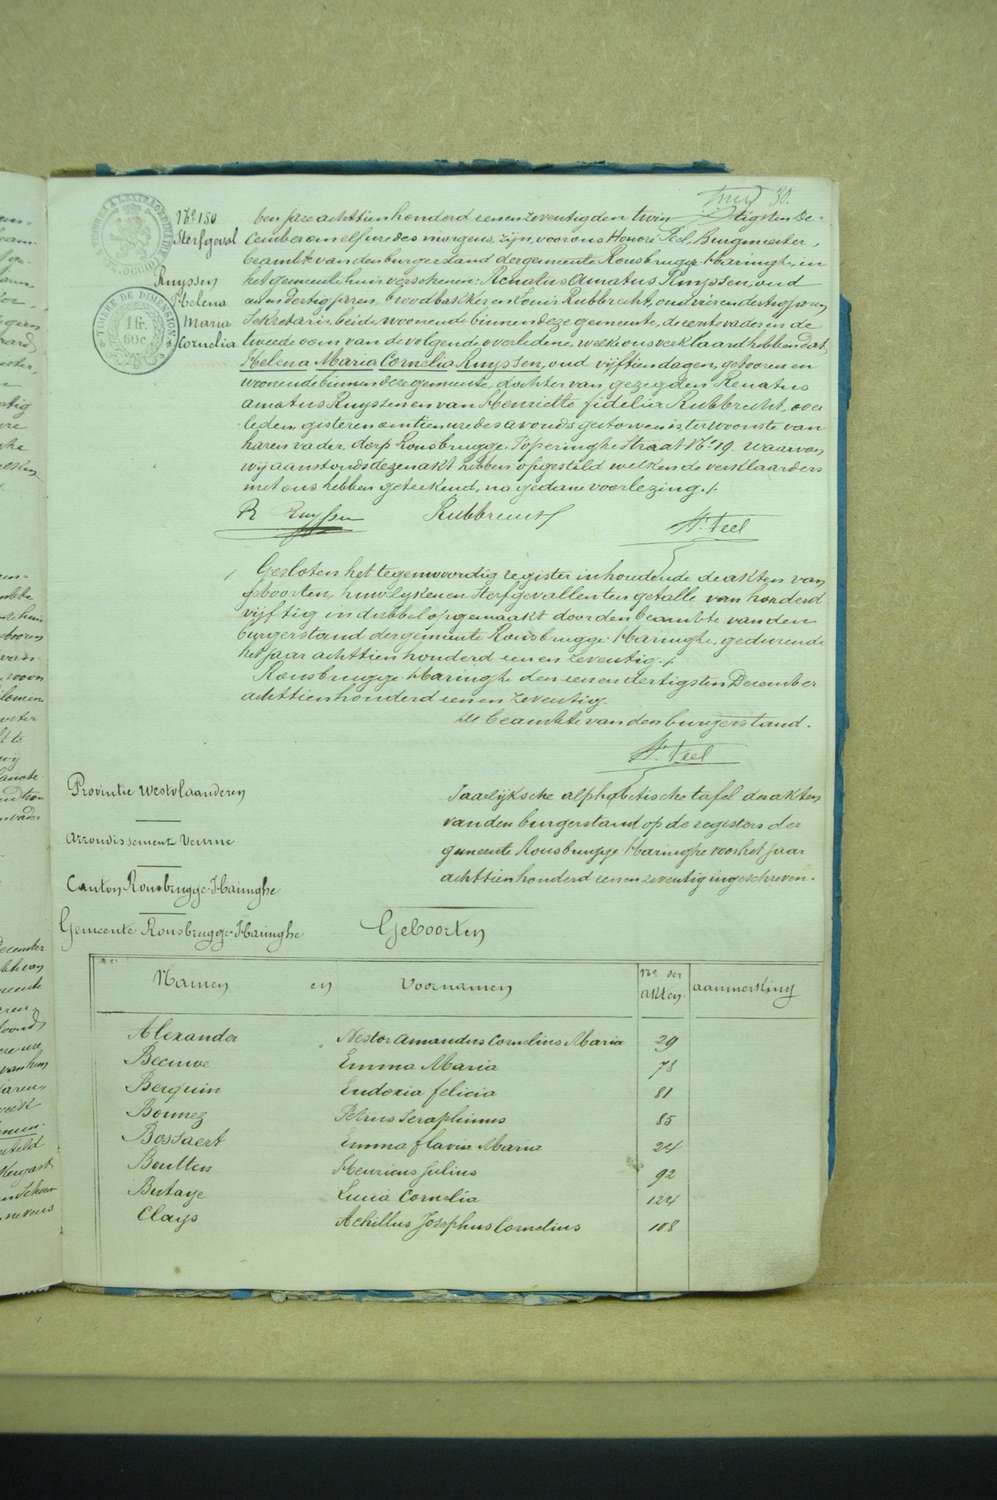 30.
Nr 150
Sterfgeval
Ruyssen
Helena
Maria
Cornelia
TIMBRE DE DIMENSION
1 fr.
60c
den jare achttien honderd een en zeventig den twin tigsten De-
cember om elf ure des morgens, zijn voor ons Honoré Teel, Burgmeester,
beambte van den burgerstand der gemeente Rousbrugge-Haringhe, in
het gemeentehuis verschenen: Renatus Amatus Ruyssen, oud
een en dertig jaren, broodbakker en Louis Rubbrecht, oud vier en dertig jaren
Sekretaris, beide woonende binnen deze gemeente, de eerste vader en de
tweede oom van de volgende overledene, welke ons verklaard hebben dat
Helena Maria Cornelia Ruyssen, oud vijftien dagen, geboren en
woonende binnen deze gemeente, dochter van gezegden Renatus
Amatus Ruyssen en van Henriette fidelia Rubbrecht, over
leden gisteren om tien ure des avonds gestorven is ter woonste van
haren vader, dorp Rousbrugge, Poperinghe Straat Nr 19. Waarvan
wij aanstonds dezen akt hebben opgesteld welken de verklaarders
met ons hebben geteekend, na gedane voorlezing./.
R Ruyssen Rubbrecht H. Teel
Gesloten het tegenwoordig register inhoudende de akten van
Geboorten, huwlyken en Sterfgevallen ten getalle van honderd
vijftig in dubbel opgemaakt door den beambte van den
burgerstand der gemeente Rousbrugge-Haringhe, gedurende
het jaar achttien honderd een en zeventig./.
Rousbrugge-Haringhe den een en dertigsten December
achttien honderd een en zeventig.
De beambte van den burgerstand.
H. Teel
Provintie Westvlaanderen
Arrondissement Veurne
Canton Rousbrugge-Haringhe
Gemeente Rousbrugge-Haringhe
Jaarlijksche alphabetische tafel der akten
van den burgerstand op de registers der
gemeente Rousbrugge Haringhe voor het jaar
achttien honderd een en zeventig ingeschreven.
Geboorten
Namen en Voornamen Nr der akten aanmerking
Alexander Nestor Amandus Cornelius Maria 29
Becuwe Emma Maria 78
Berquin Eudoxia felicia 81
Bonnez Petrus Seraphinus 85
Bossaert Emma flavie Maria 24
Boutten Henricus Julius 92
Butaye Lucia Cornelia 124
Clays Achilles Josephus Cornelius 108